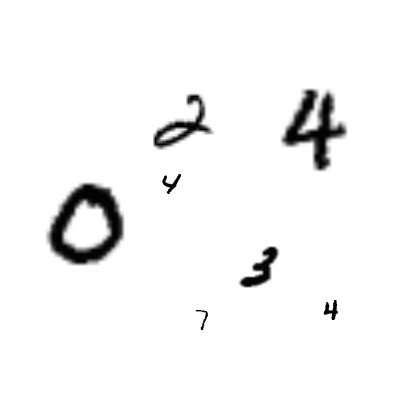 2 4
4
0
3
7 4